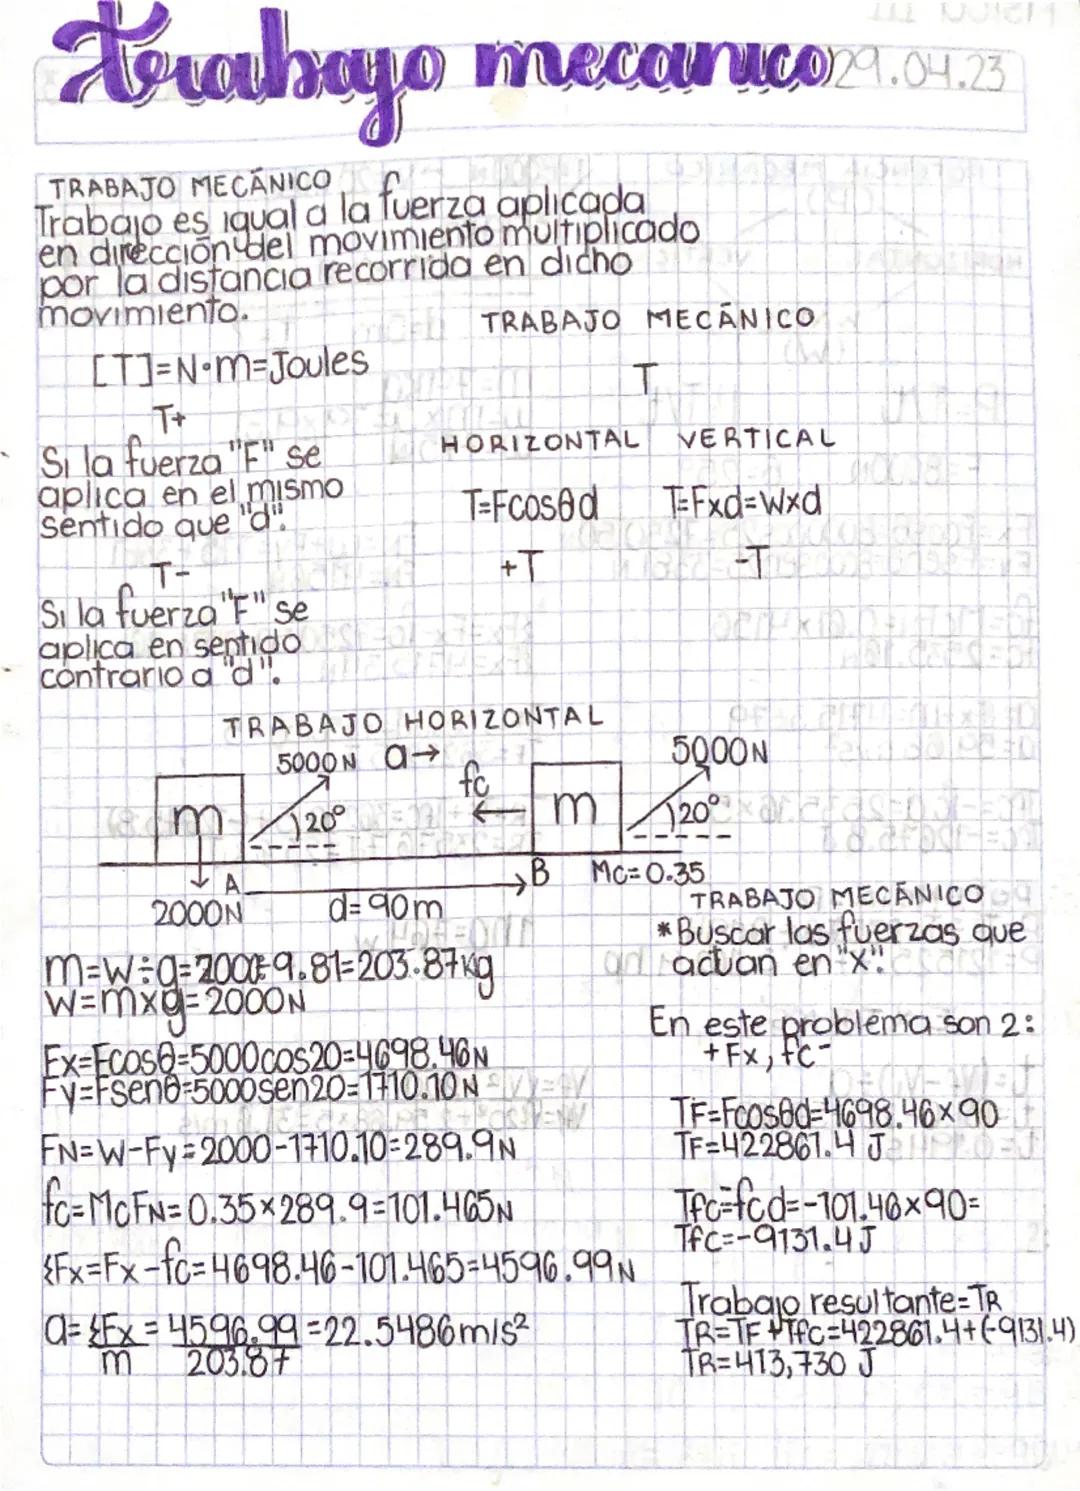 Trabajo mecanico 29.04.23
TRABAJO MECÁNICO
Trabajo es igual a la fuerza aplicada
en dirección del movimiento multiplicado
por la distancia recorrida en dicho
movimiento.
[T]=N·m=Joules
T+
Si la fuerza "F" se
aplica en el mismo
sentido que "d".
T-
Si la fuerza "F" se
aplica en sentido
contrario a "d".
TRABAJO MECÁNICO
T
HORIZONTAL VERTICAL
T=Fcosθd T=Fxd=Wxd
+T -T
TRABAJO HORIZONTAL
5000N a→ 5000N
fc
m 20° m 20°
A B Mc=0.35
2000N d=90m
m=W÷g=2000÷9.81=203.87kg
W=mxg=2000N
Fx=Fcosθ=5000cos20=4698.46N
Fy=Fsenθ=5000sen20=1710.10N
FN=W-Fy=2000-1710.10=289.9N
fc=McFN=0.35×289.9=101.465N
ΣFx=Fx-fc=4698.46-101.465=4596.99N
a=ΣFx = 4596.99 =22.5486m/s²
m 203.87
TRABAJO MECÁNICO
*Buscar las fuerzas que
actuan en "x".
En este problema son 2:
+Fx, fc-
TF=Fcosθd=4698.46×90
TF=422861.4 J
Tfc=fcd=-101.46×90=
Tfc=-9131.4J
Trabajo resultante=TR
TR=TF+Tfc=422861.4+(-9131.4)
TR=413,730 J